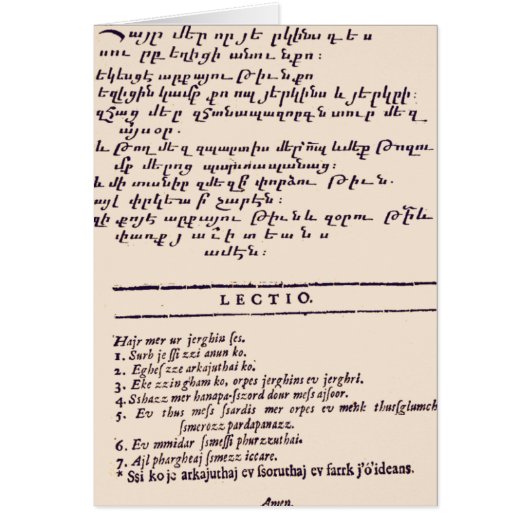 Հայր մեր որ յե րկինս դ ե ս
սու րբ եղիցի անուն քո :
եկեսցէ արքայու թիւն քո
եղիցին կամք քո որպ յերկինս և յերկրի :
զհաց մեր զհանապազորդն տուր մե զ
այս օր .
և թող մեզ զպարտիս մեր և մեք թողու
մք մերոց պարտապանաց :
և մի տանիր զմեզ ի փորձու թիւն .
այլ փրկեա ի չարէն :
զի քո յէ արքայու թիւն և զօրու թի և
փառք յ աւիտեանս
ամէն :
LECTIO.
Hajr mer ur jerghin ſes.
1. Surb je ſſi zzi anun ko.
2. Egheſ zze arkajuthai ko.
3. Eke zzingham ko, orpes jerghins ev jerghri.
4. Sshazz mer hanapa-ſszord dour meſs ajſoor.
5. Ev thus meſs ſsardis mer orpes ev menk thusſglumch
ſsmerozz pardapanazz.
6. Ev mmidar ſsmeſſi phurzzuthai.
7. Ajl phargheaj ſsmezz iccare.
* Sſi ko je arkajuthaj ev ſsoruthaj ev farrk j'ó'ideans.
Amen.